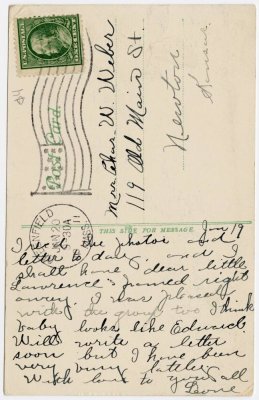 U.S. POSTAGE
Post Card
1911
MASS.
Mrs Chas. W. Weber
119 Old Main St.
Newton
Kansas
THIS SIDE FOR MESSAGE.
Jan 19
I rec'd the photos and
letter to day. and I
shall have dear little
Lawrence's framed right
away. I was pleased
with the group too I think
baby looks like Edward.
Will write a letter
soon but I have been
very busy lately.
With love to you all
Leone